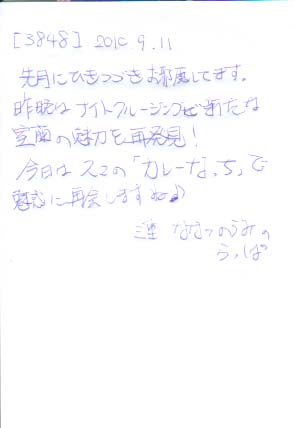 [3848] 2010.9.11
先月にひきつづきお邪魔してます。
昨晩はナイトクルージングで新たな
室蘭の魅力を再発見!
今日は スズの「カレーな、ち」で
魅惑に再会しますね♪
三重 ななつのうみの
らっぱ